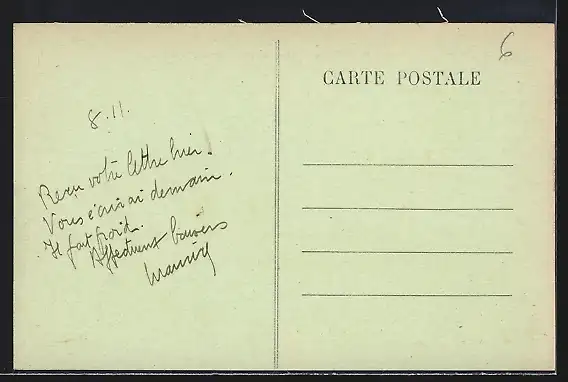 8.11.
Reçu votre lettre hier.
Vous écrirai demain.
Il fait froid.
Affectueux baisers
CARTE POSTALE
6